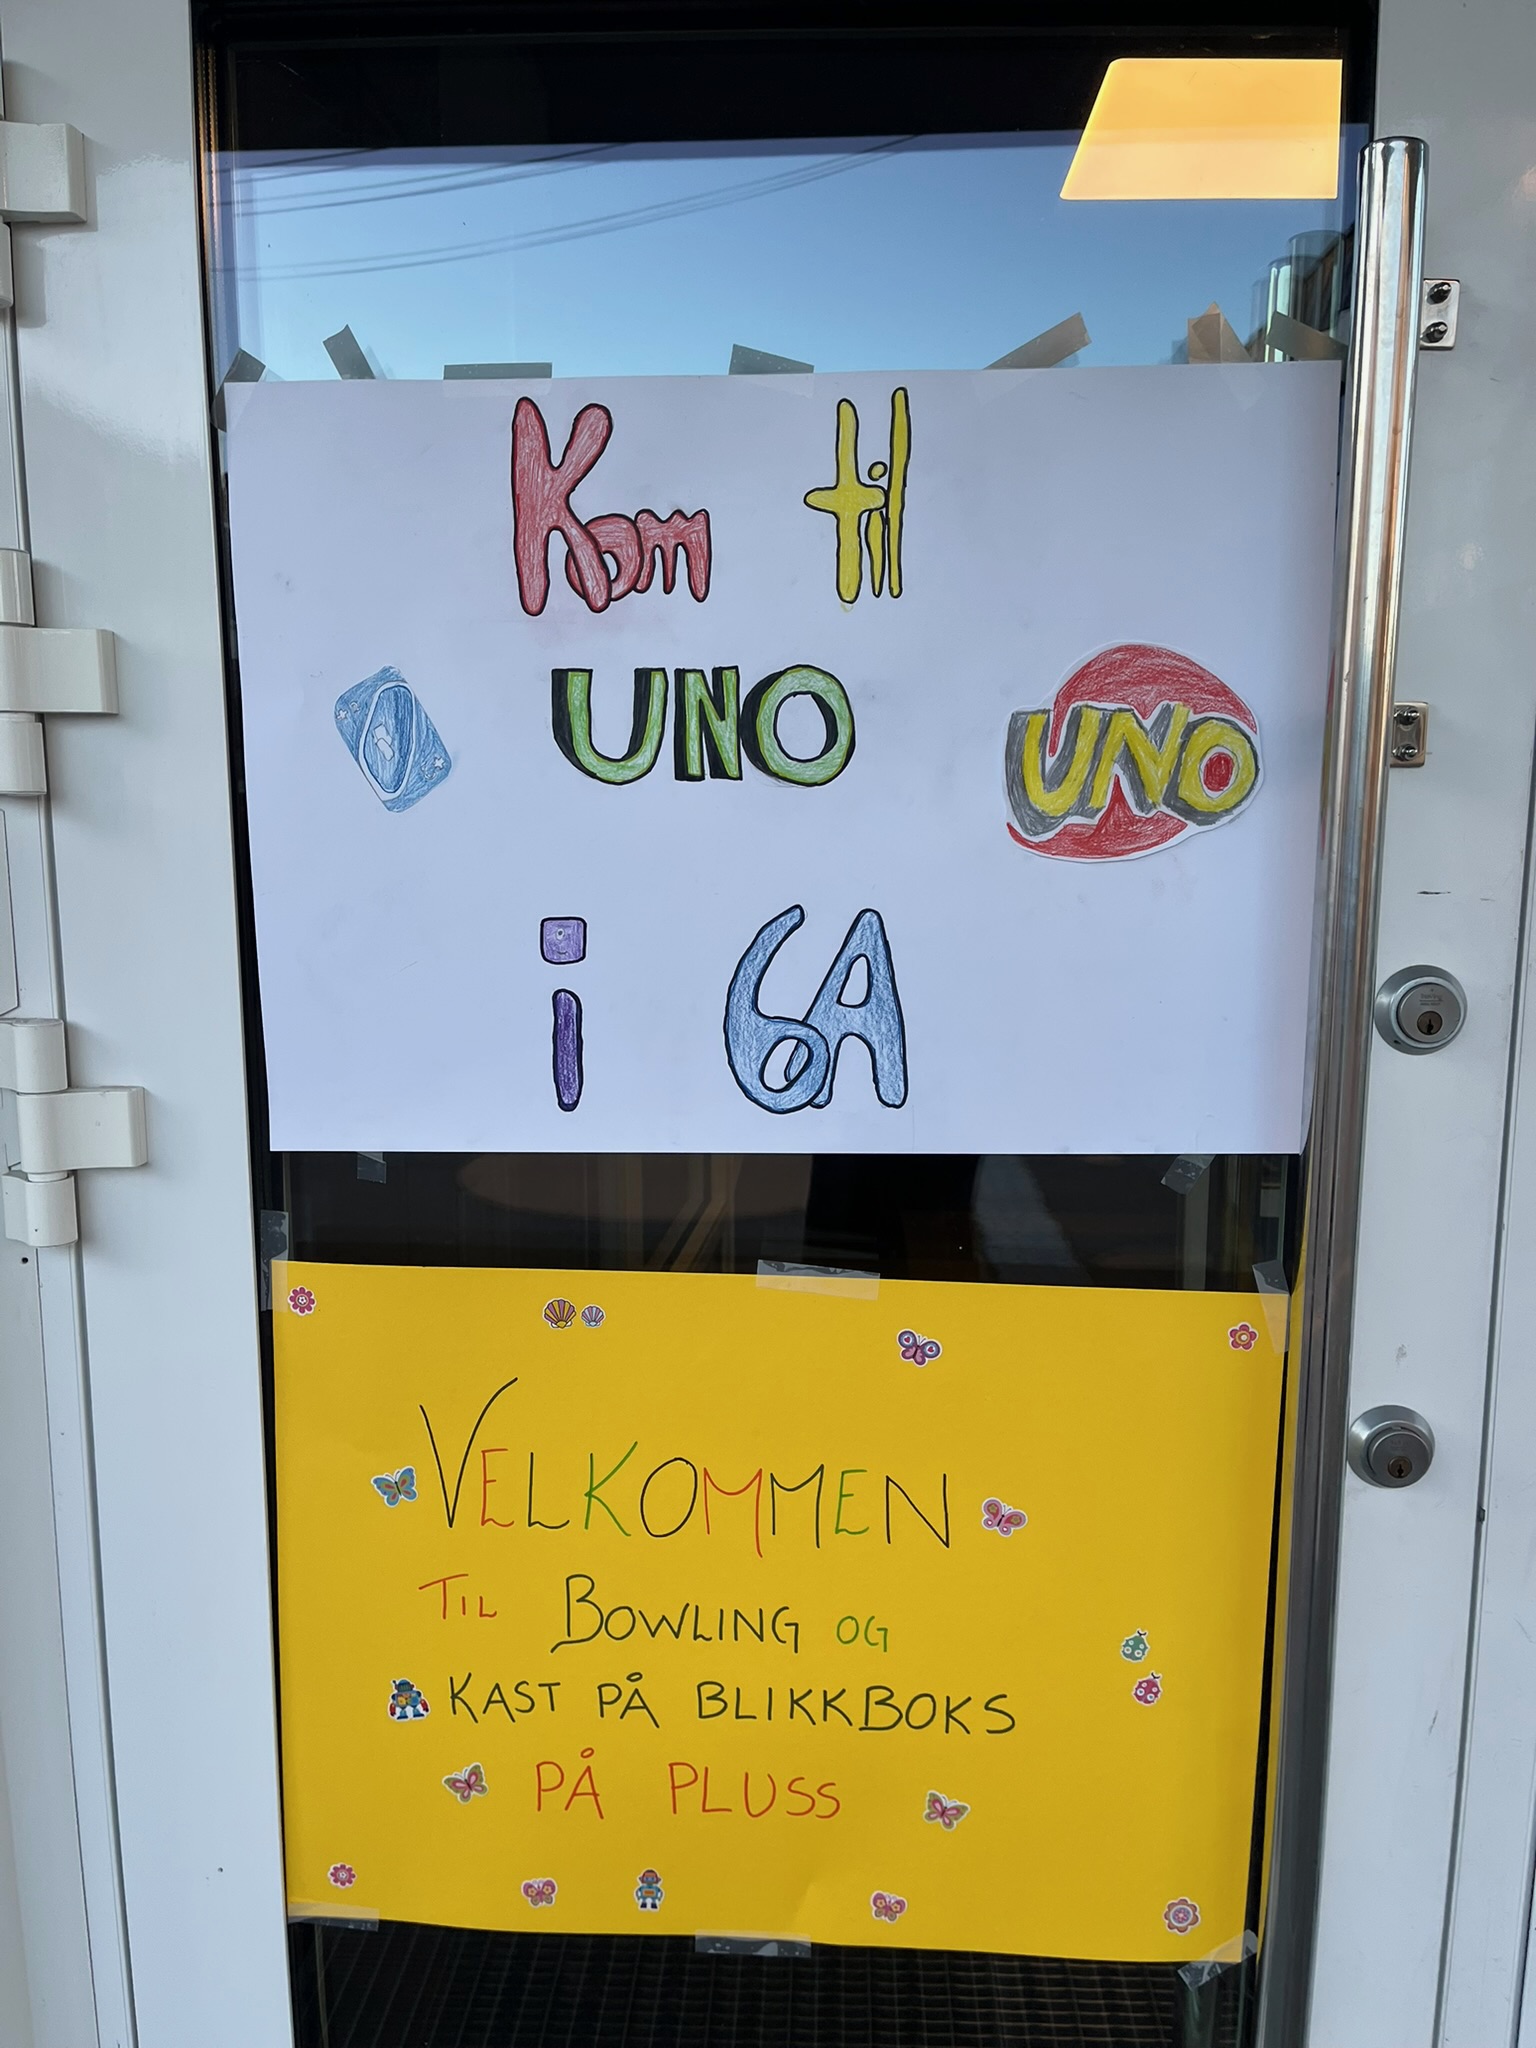 Kom til
UNO
UNO
i 6A
VELKOMMEN
TIL BOWLING OG
KAST PÅ BLIKKBOKS
PÅ PLUSS